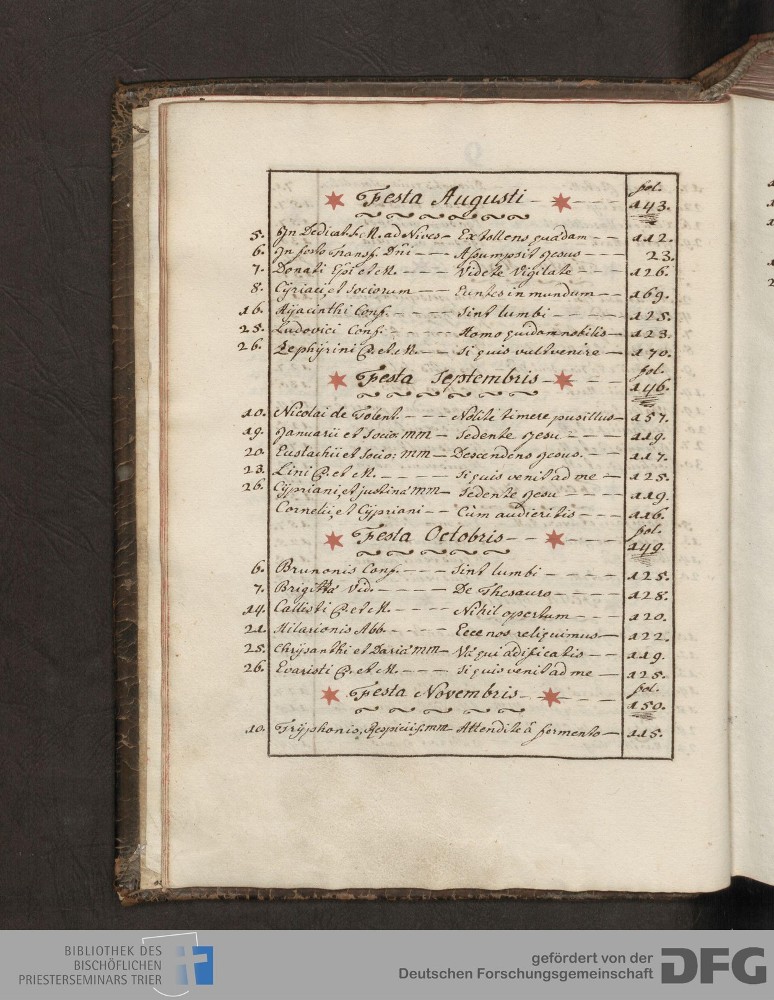 fol.
Festa Augusti 143.
5. In Dedicat. S. M. ad Nives Extollens quaedam 112.
6. In festo Transf. Dñi Assumpsit Jesus 23.
7. Donati Epi et M. Videte Vigilate 126.
8. Cÿriaci, et Sociorum Euntes in mundum 169.
16. Hÿacinthi Conf. Sint lumbi 125.
25. Ludovici Conf. Homo quidam nobilis 123.
26. Zephÿrini P. et M. Si quis vult venire 170.
fol.
Festa Septembris 146.
10. Nicolai de Tolent. Nolite timere pusillus 157.
19. Januarii et Socior. MM Sedente Jesu 119.
20. Eustachii et Socior: MM Descendens Jesus. 117.
23. Lini P. et M. Si quis venit ad me 125.
26. Cÿpriani, et Justinæ MM Sedente Jesu 119.
Cornelii, et Cÿpriani Cùm audieritis 116.
fol.
Festa Octobris 149.
6. Brunonis Conf. Sint lumbi 125.
7. Brigittæ Vid. De Thesauro 128.
14. Callisti P. et M. Nihil opertum 120.
21. Hilarionis Abb. Ecce nos reliquimus 122.
25. Chrÿsanthi et Dariæ MM Væ qui ædificatis 119.
26. Evaristi P. et M. Si quis venit ad me 125.
fol.
Festa Novembris 150.
10. Trÿphonis, Respicii, MM Attendite à fermento 115.
BIBLIOTHEK DES
BISCHÖFLICHEN
PRIESTERSEMINARS TRIER
gefördert von der
Deutschen Forschungsgemeinschaft DFG